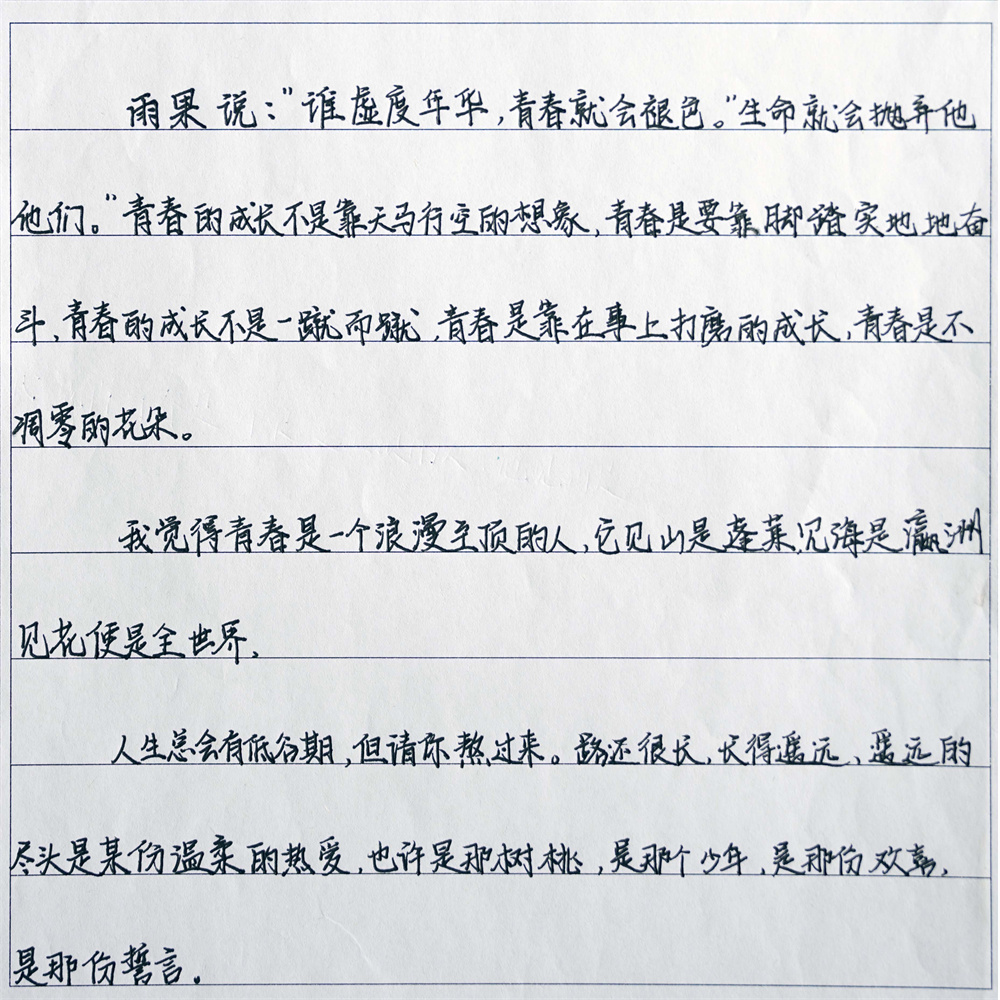 雨果说："谁虚度年华,青春就会褪色。"生命就会抛弃他
他们。"青春的成长不是靠天马行空的想象,青春是要靠脚踏实地地奋
斗,青春的成长不是一蹴而蹴,青春是靠在事上打磨的成长,青春是不
凋零的花朵。
我觉得青春是一个浪漫至顶的人,它见山是蓬莱,见海是瀛洲
见花便是全世界,
人生总会有低谷期,但请你熬过来。路还很长,长得遥远、遥远的
尽头是某份温柔的热爱,也许是那树桃,是那个少年,是那份欢喜,
是那份誓言。